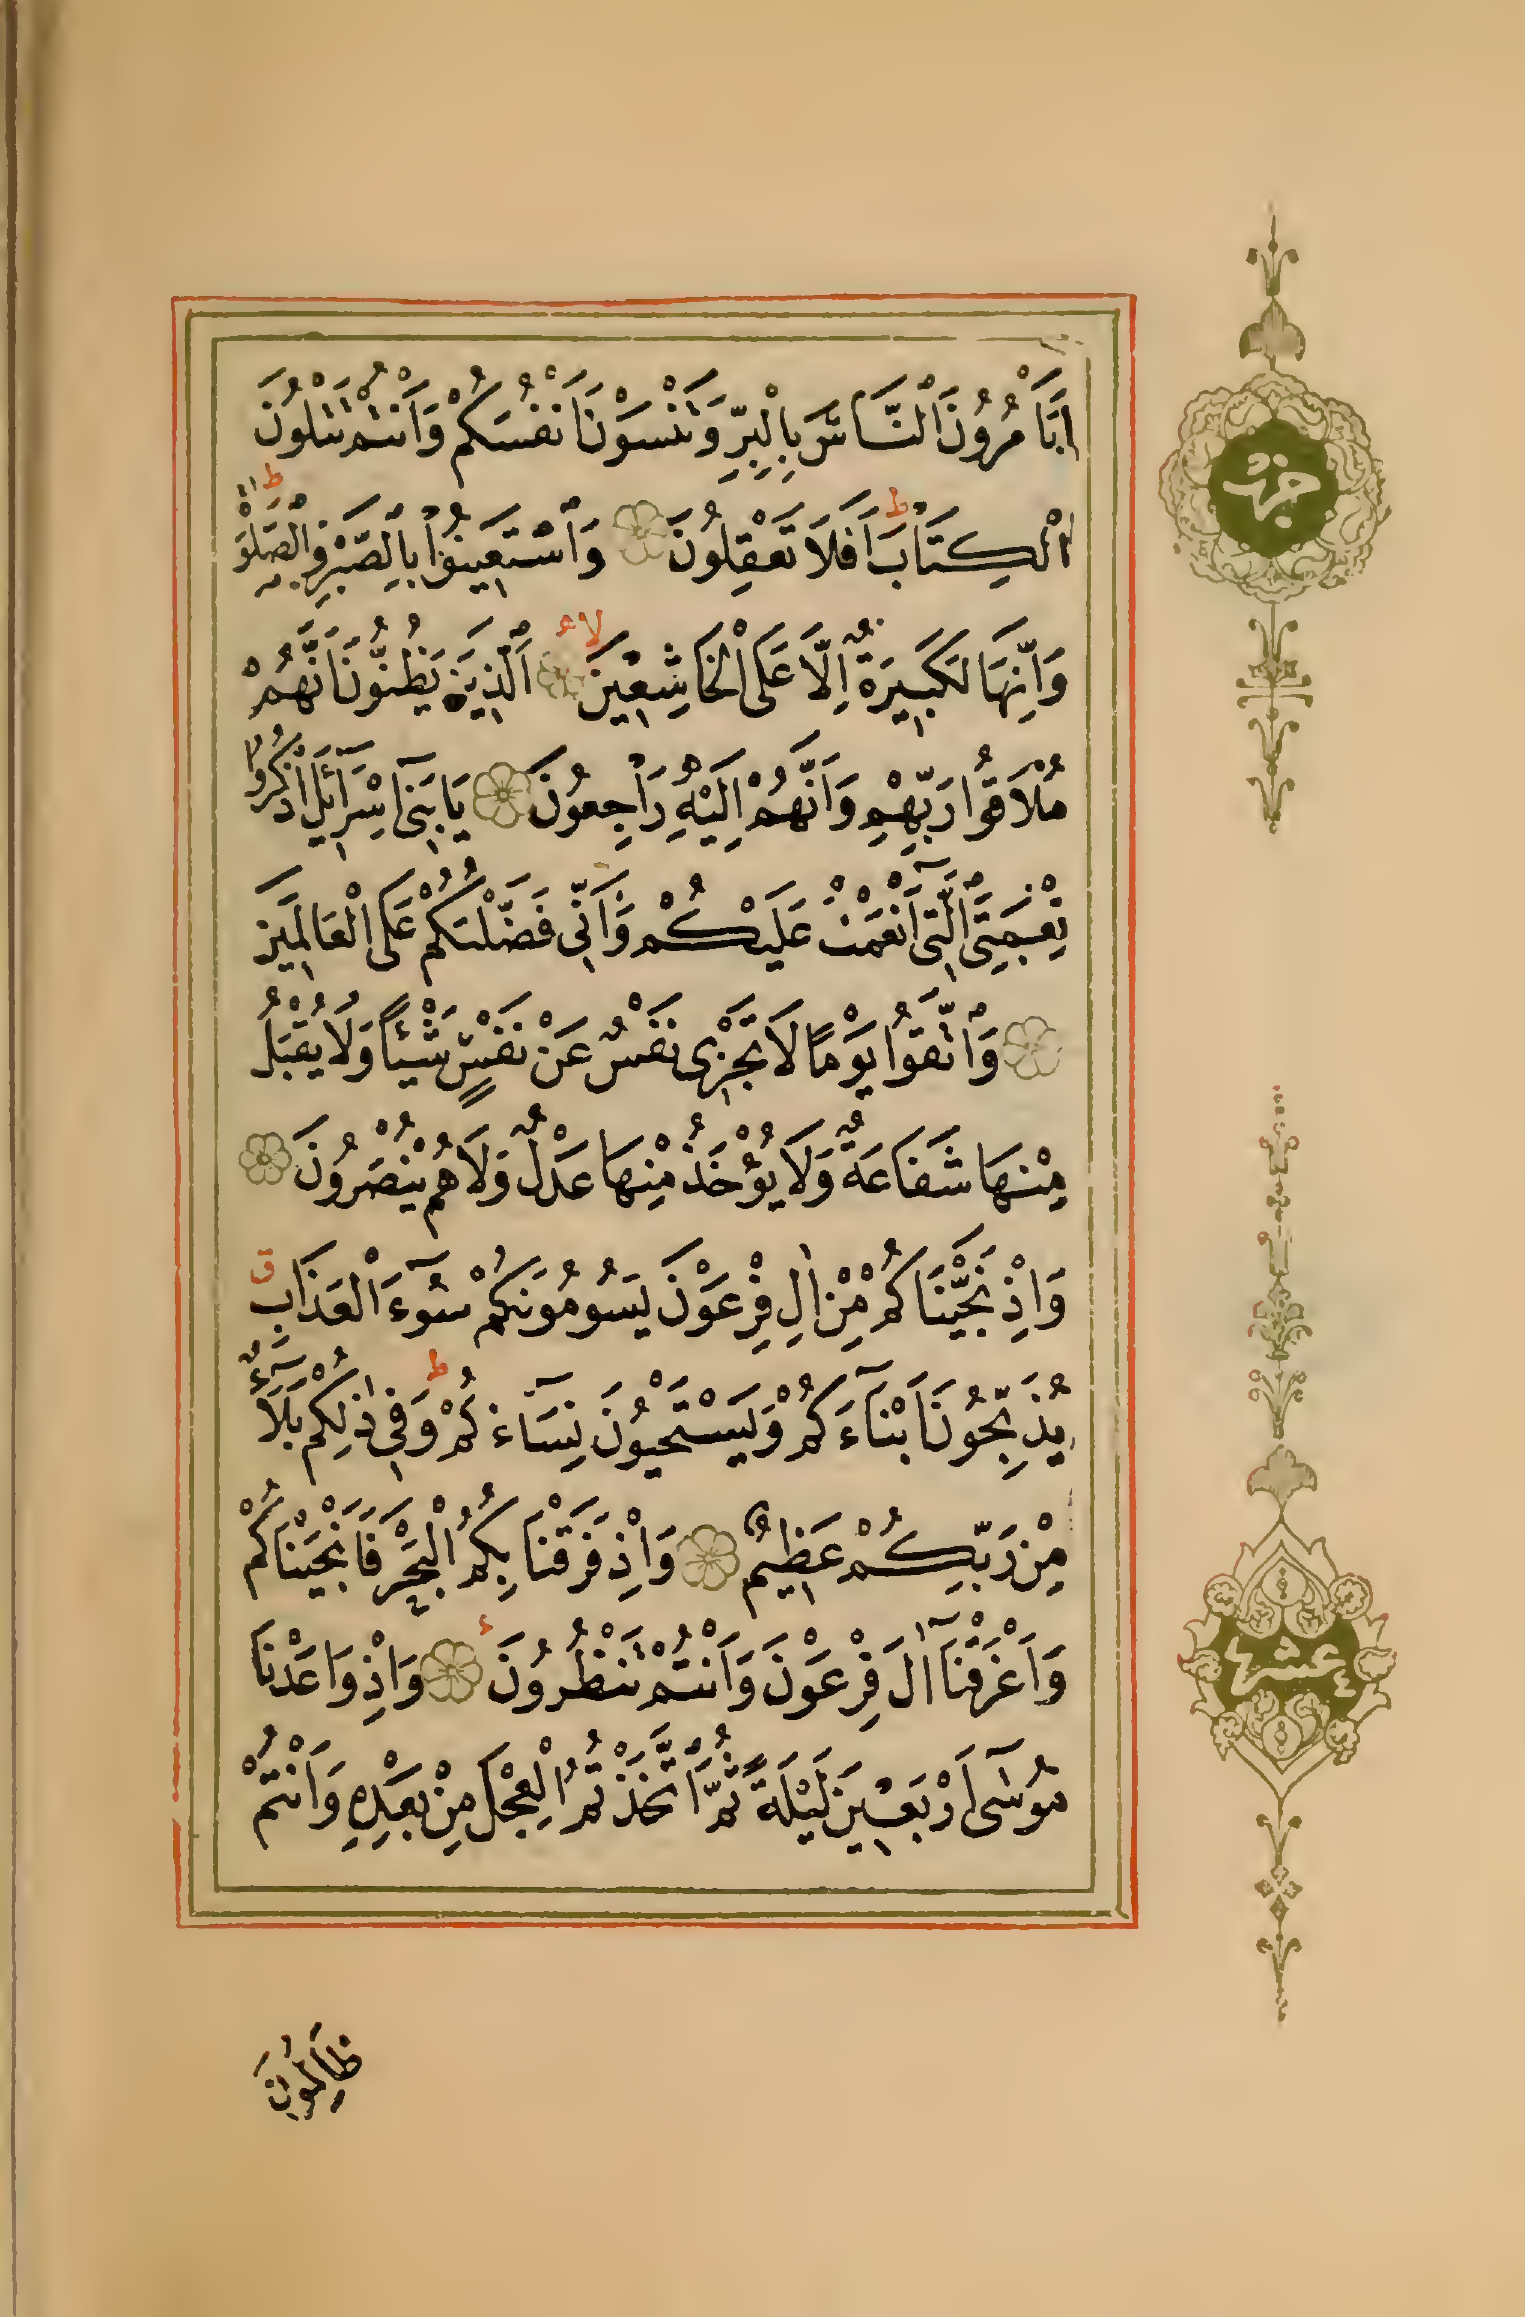 اَتَأْمُرُونَ النَّاسَ بِالْبِرِّ وَتَنْسَوْنَ اَنْفُسَكُمْ وَاَنْتُمْ تَتْلُونَ
الْكِتَابَ ط اَفَلَا تَعْقِلُونَ وَاسْتَعِينُوا بِالصَّبْرِ وَالصَّلٰوةِ ط
وَاِنَّهَا لَكَبِيرَةٌ اِلَّا عَلَى الْخَاشِعِينَ لا اَلَّذِينَ يَظُنُّونَ اَنَّهُمْ
مُلَاقُوا رَبِّهِمْ وَاَنَّهُمْ اِلَيْهِ رَاجِعُونَ يَا بَنِٓى اِسْرَٓائِلَ اذْكُرُوا
نِعْمَتِىَ الَّتِٓى اَنْعَمْتُ عَلَيْكُمْ وَاَنِّى فَضَّلْتُكُمْ عَلَى الْعَالَمِينَ
وَاتَّقُوا يَوْمًا لَا تَجْزِى نَفْسٌ عَنْ نَفْسٍ شَيْئًا وَلَا يُقْبَلُ
مِنْهَا شَفَاعَةٌ وَلَا يُؤْخَذُ مِنْهَا عَدْلٌ وَلَا هُمْ يُنْصَرُونَ
وَاِذْ نَجَّيْنَاكُمْ مِنْ اٰلِ فِرْعَوْنَ يَسُومُونَكُمْ سُٓوءَ الْعَذَابِ ق
يُذَبِّحُونَ اَبْنَٓاءَكُمْ وَيَسْتَحْيُونَ نِسَٓاءَكُمْ ط وَفِى ذٰلِكُمْ بَلَٓاءٌ
مِنْ رَبِّكُمْ عَظِيمٌ وَاِذْ فَرَقْنَا بِكُمُ الْبَحْرَ فَاَنْجَيْنَاكُمْ
وَاَغْرَقْنَٓا اٰلَ فِرْعَوْنَ وَاَنْتُمْ تَنْظُرُونَ وَاِذْ وَاعَدْنَا
مُوسٰٓى اَرْبَعِينَ لَيْلَةً ثُمَّ اتَّخَذْتُمُ الْعِجْلَ مِنْ بَعْدِهِ وَاَنْتُمْ
ظَالِمُونَ
حزب
عشر